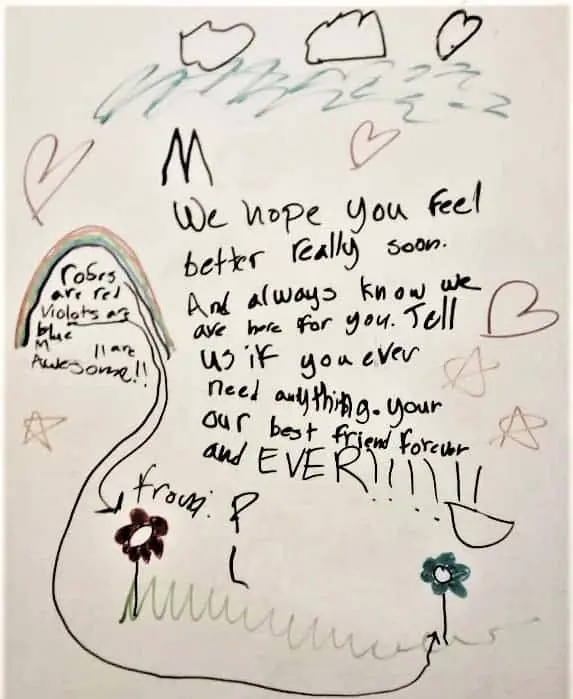 M
We hope you feel
better really soon.
And always know we
are here for you. Tell
us if you ever
need anything. your
our best friend forever
and EVER!!!!!!
roses
are red
violots are
blue
M are
Awesome!!
from: P
L